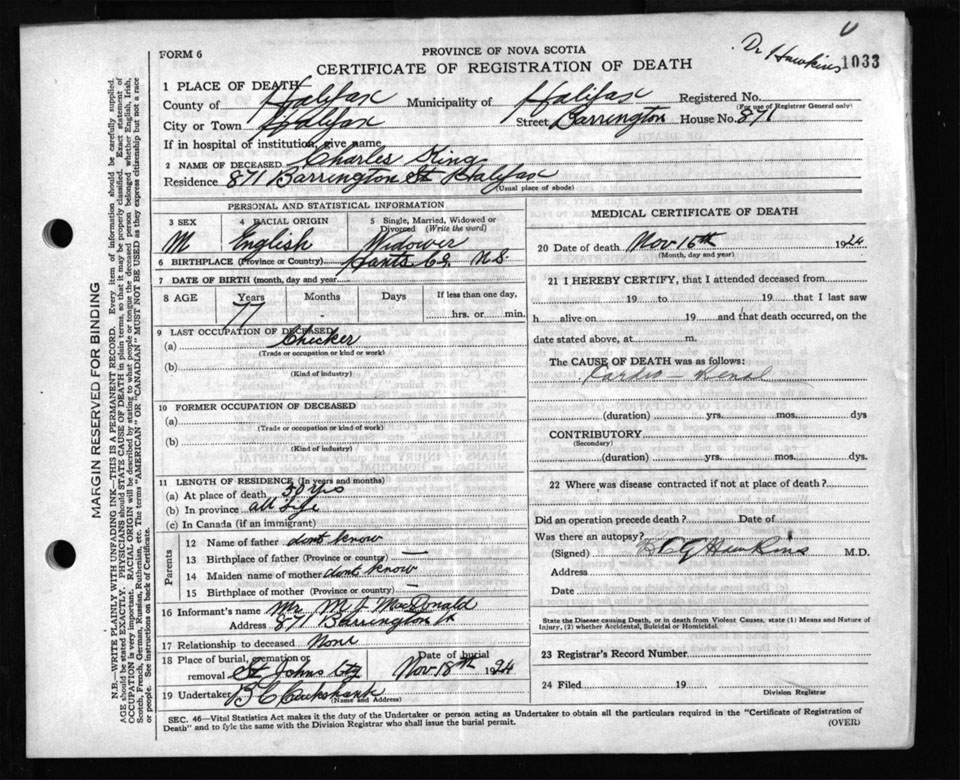 Dr Hawkins
1033
FORM 6
PROVINCE OF NOVA SCOTIA
CERTIFICATE OF REGISTRATION OF DEATH
1 PLACE OF DEATH
County of Halifax Municipality of Halifax Registered No.
(For use of Registrar General only)
City or Town Halifax Street Barrington House No. 871
If in hospital of institution, give name
2 NAME OF DECEASED Charles King
Residence 871 Barrington St Halifax
(Usual place of abode)
PERSONAL AND STATISTICAL INFORMATION
3 SEX 4 RACIAL ORIGIN 5 Single, Married, Widowed or
Divorced (Write the word)
M English Widower
6 BIRTHPLACE (Province or Country) Hants Co. N.S.
7 DATE OF BIRTH (month, day and year)
8 AGE Years Months Days If less than one day,
77 - hrs. or min.
9 LAST OCCUPATION OF DECEASED
(a) Checker
(Trade or occupation or kind or work)
(b)
(Kind of industry)
10 FORMER OCCUPATION OF DECEASED
(a)
(Trade or occupation or kind of work)
(b)
(Kind of industry)
11 LENGTH OF RESIDENCE (In years and months)
(a) At place of death 50 Yrs
(b) In province all Life
(c) In Canada (if an immigrant)
Parents
12 Name of father dont know
13 Birthplace of father (Province or country) —
14 Maiden name of mother dont know
15 Birthplace of mother (Province or country) —
16 Informant's name Mr M J MacDonald
Address 871 Barrington St
17 Relationship to deceased None
18 Place of burial, cremation or removal St Johns Cty
Date of burial Nov 18th 1924
19 Undertaker B C Cruikshank
(Name and Address)
MEDICAL CERTIFICATE OF DEATH
20 Date of death Nov 16th 1924
(Month, day and year)
21 I HEREBY CERTIFY, that I attended deceased from
19 to 19 that I last saw
h alive on 19 and that death occurred, on the
date stated above, at m.
The CAUSE OF DEATH was as follows:
Cardio - Renal
(duration) yrs. mos. dys
CONTRIBUTORY
(Secondary)
(duration) yrs. mos. dys.
22 Where was disease contracted if not at place of death?
Did an operation precede death? Date of
Was there an autopsy?
(Signed) Hawkins M.D.
Address
Date
State the Disease causing Death, or in death from Violent Causes, state (1) Means and Nature of
Injury, (2) whether Accidental, Suicidal or Homicidal.
23 Registrar's Record Number
24 Filed 19
Division Registrar
SEC. 46—Vital Statistics Act makes it the duty of the Undertaker or person acting as Undertaker to obtain all the particulars required in the "Certificate of Registration of
Death" and to fyle the same with the Division Registrar who shall issue the burial permit.
(OVER)
MARGIN RESERVED FOR BINDING
N.B.—WRITE PLAINLY WITH UNFADING INK—THIS IS A PERMANENT RECORD. Every item of information should be carefully supplied.
AGE should be stated EXACTLY. PHYSICIANS should STATE CAUSE OF DEATH in plain terms, so that it may be properly classified. Exact statement of
OCCUPATION is very important. RACIAL ORIGIN will be described by stating to what people or tongue the deceased person belonged whether English, Irish,
Scotch, French, German, Russian, Ruthenian, etc. The terms "AMERICAN" OR "CANADIAN" MUST NOT BE USED as they express citizenship but not a race
or people. See instructions on back of Certificate.